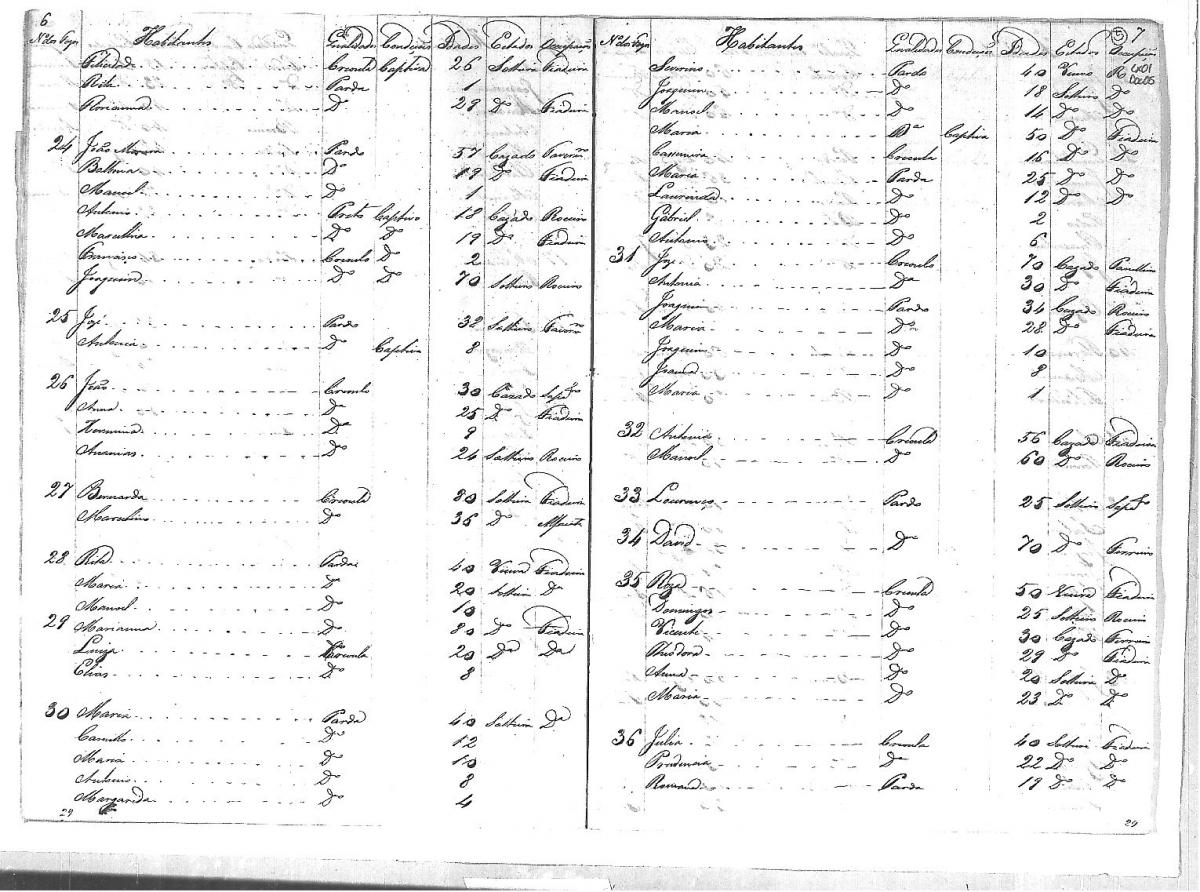 6
Nº dos Fogos Habitantes Qualidades Condições Idades Estados Occupações
Felicidade Creoula Captiva 26 Solteira Fiadeira
Rita Parda 1
Dº 28 Dº Fiadeira
24 João Pardo 37 Cazado
Balbina Dº 19 Dº Fiadeira
Manoel Dº 1
Antonio Preto Captivo 18 Cazado Roceiro
Marcellina Dº Dº 19 Dº Fiadeira
Francisco Creoulo Dº 2
Joaquim Dº Dº 70 Solteiro Roceiro
25 Jozé Pardo 38 Solteiro
Antonia Dº Captiva 8
26 João Creoulo 30 Cazado Sapº
Anna Dº 25 Dº Fiadeira
Dº 9
Ananias Dº 24 Solteiro Roceiro
27 Bernarda Creoula 30 Solteira Fiadeira
Marcelino Dº 36 Dº
28 Rita Parda 40 Viuva Fiadeira
Maria Dº 20 Solteira Dº
Manoel Dº 10
29 Marianna Dº 80 Dº Fiadeira
Luiza Creoula 20 Dª Dª
Elias Dº 8
30 Maria Parda 40 Solteira Dª
Camillo Dº 12
Maria Dº 10
Antonio Dº 8
Margarida Dº 4
29
5 7
Lx01
Doc05
Nº dos Fogos Habitantes Qualidades Condições Idades Estados Occupações
Severino Pardo 40 Viuvo R
Joaquim Dº 18 Solteiro Dº
Manoel Dº 14 Dº Dº
Maria Dª Captiva 50 Dº Fiadeira
Casemira Creoula 16 Dº Dº
Maria Parda 25 Dº Dº
Laurinda Dº 12 Dº Dº
Gabriel Dº 2
Antonio Dº 6
31 Jozé Creoulo 70 Cazado
Antonia Dª 30 Dº Fiadeira
Joaquim Pardo 34 Cazado Roceiro
Maria Dª 28 Dº Fiadeira
Joaquim Dº 10
Dº 8
Maria Dº 1
32 Antonia Creoula 56 Cazada Fiadeira
Manoel Dº 60 Dº Roceiro
33 Lourenço Pardo 25 Solteiro Sapº
34 David Dº 70 Dº Ferreiro
35 Roza Creoula 50 Viuva Fiadeira
Domingos Dº 25 Solteiro Roceiro
Vicente Dº 30 Cazado Ferreiro
Theodora Dº 29 Dº Fiadeira
Anna Dº 20 Solteira Dº
Maria Dº 23 Dº Dº
36 Julia Creoula 40 Solteira Fiadeira
Prudencia Dª 22 Dº Dº
Parda 19 Dº Dº
29